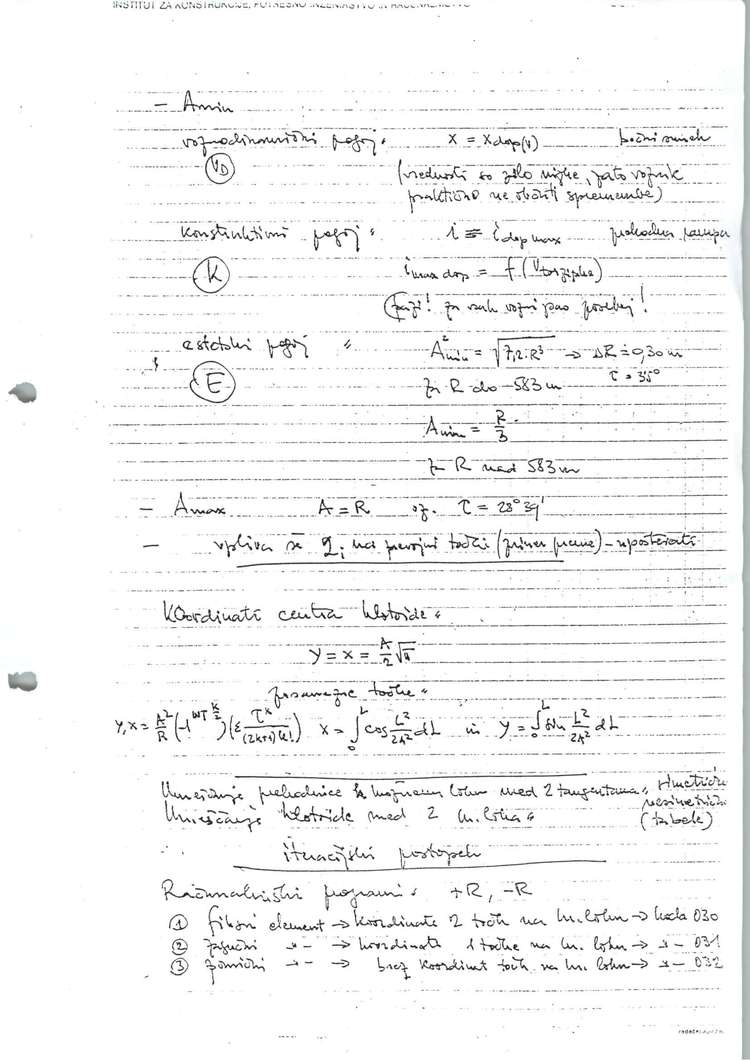 INSTITUT ZA KONSTRUKCIJE, POTRESNO INŽENIRSTVO IN RAČUNALNIŠTVO
- Amin
voznodinamični pogoj: x = xdop(v) bočni sunek
VD (vrednosti so zelo nizke, zato voznik
praktično ne občuti spremembe)
Konstruktivni pogoj: i = idop max prehodna rampa
K imax dop = f(
! za vsak vozni pas posebej!
estetski pogoj: A²min = √7,2·R³ → ΔR = 0,30 m
E za R do 583 m τ = 3,5°
Amin = R/3
za R nad 583 m
- Amax A = R oz. τ = 28°39'
- vpliva še q; na prevojni točki (primer
Koordinati centra klotoide:
y = x = A/2 √π
posamezne točke:
y, x = A²/R x = ∫₀ᴸ cos L²/2A² dL in y = ∫₀ᴸ sin L²/2A² dL
Umeščanje prehodnice s krožnim lokom med 2 tangentama: simetrične
Umeščanje klotoide med 2 kr. loka: nesimetrične
(tabele)
iteracijski postopek
Računalniški programi: +R, -R
① fiksni element → koordinate 2 točk na kr. loku → koda 030
② -"- → koordinate 1 točke na kr. loku → -"- 031
③ -"- → brez koordinat točk na kr. loku → -"- 032